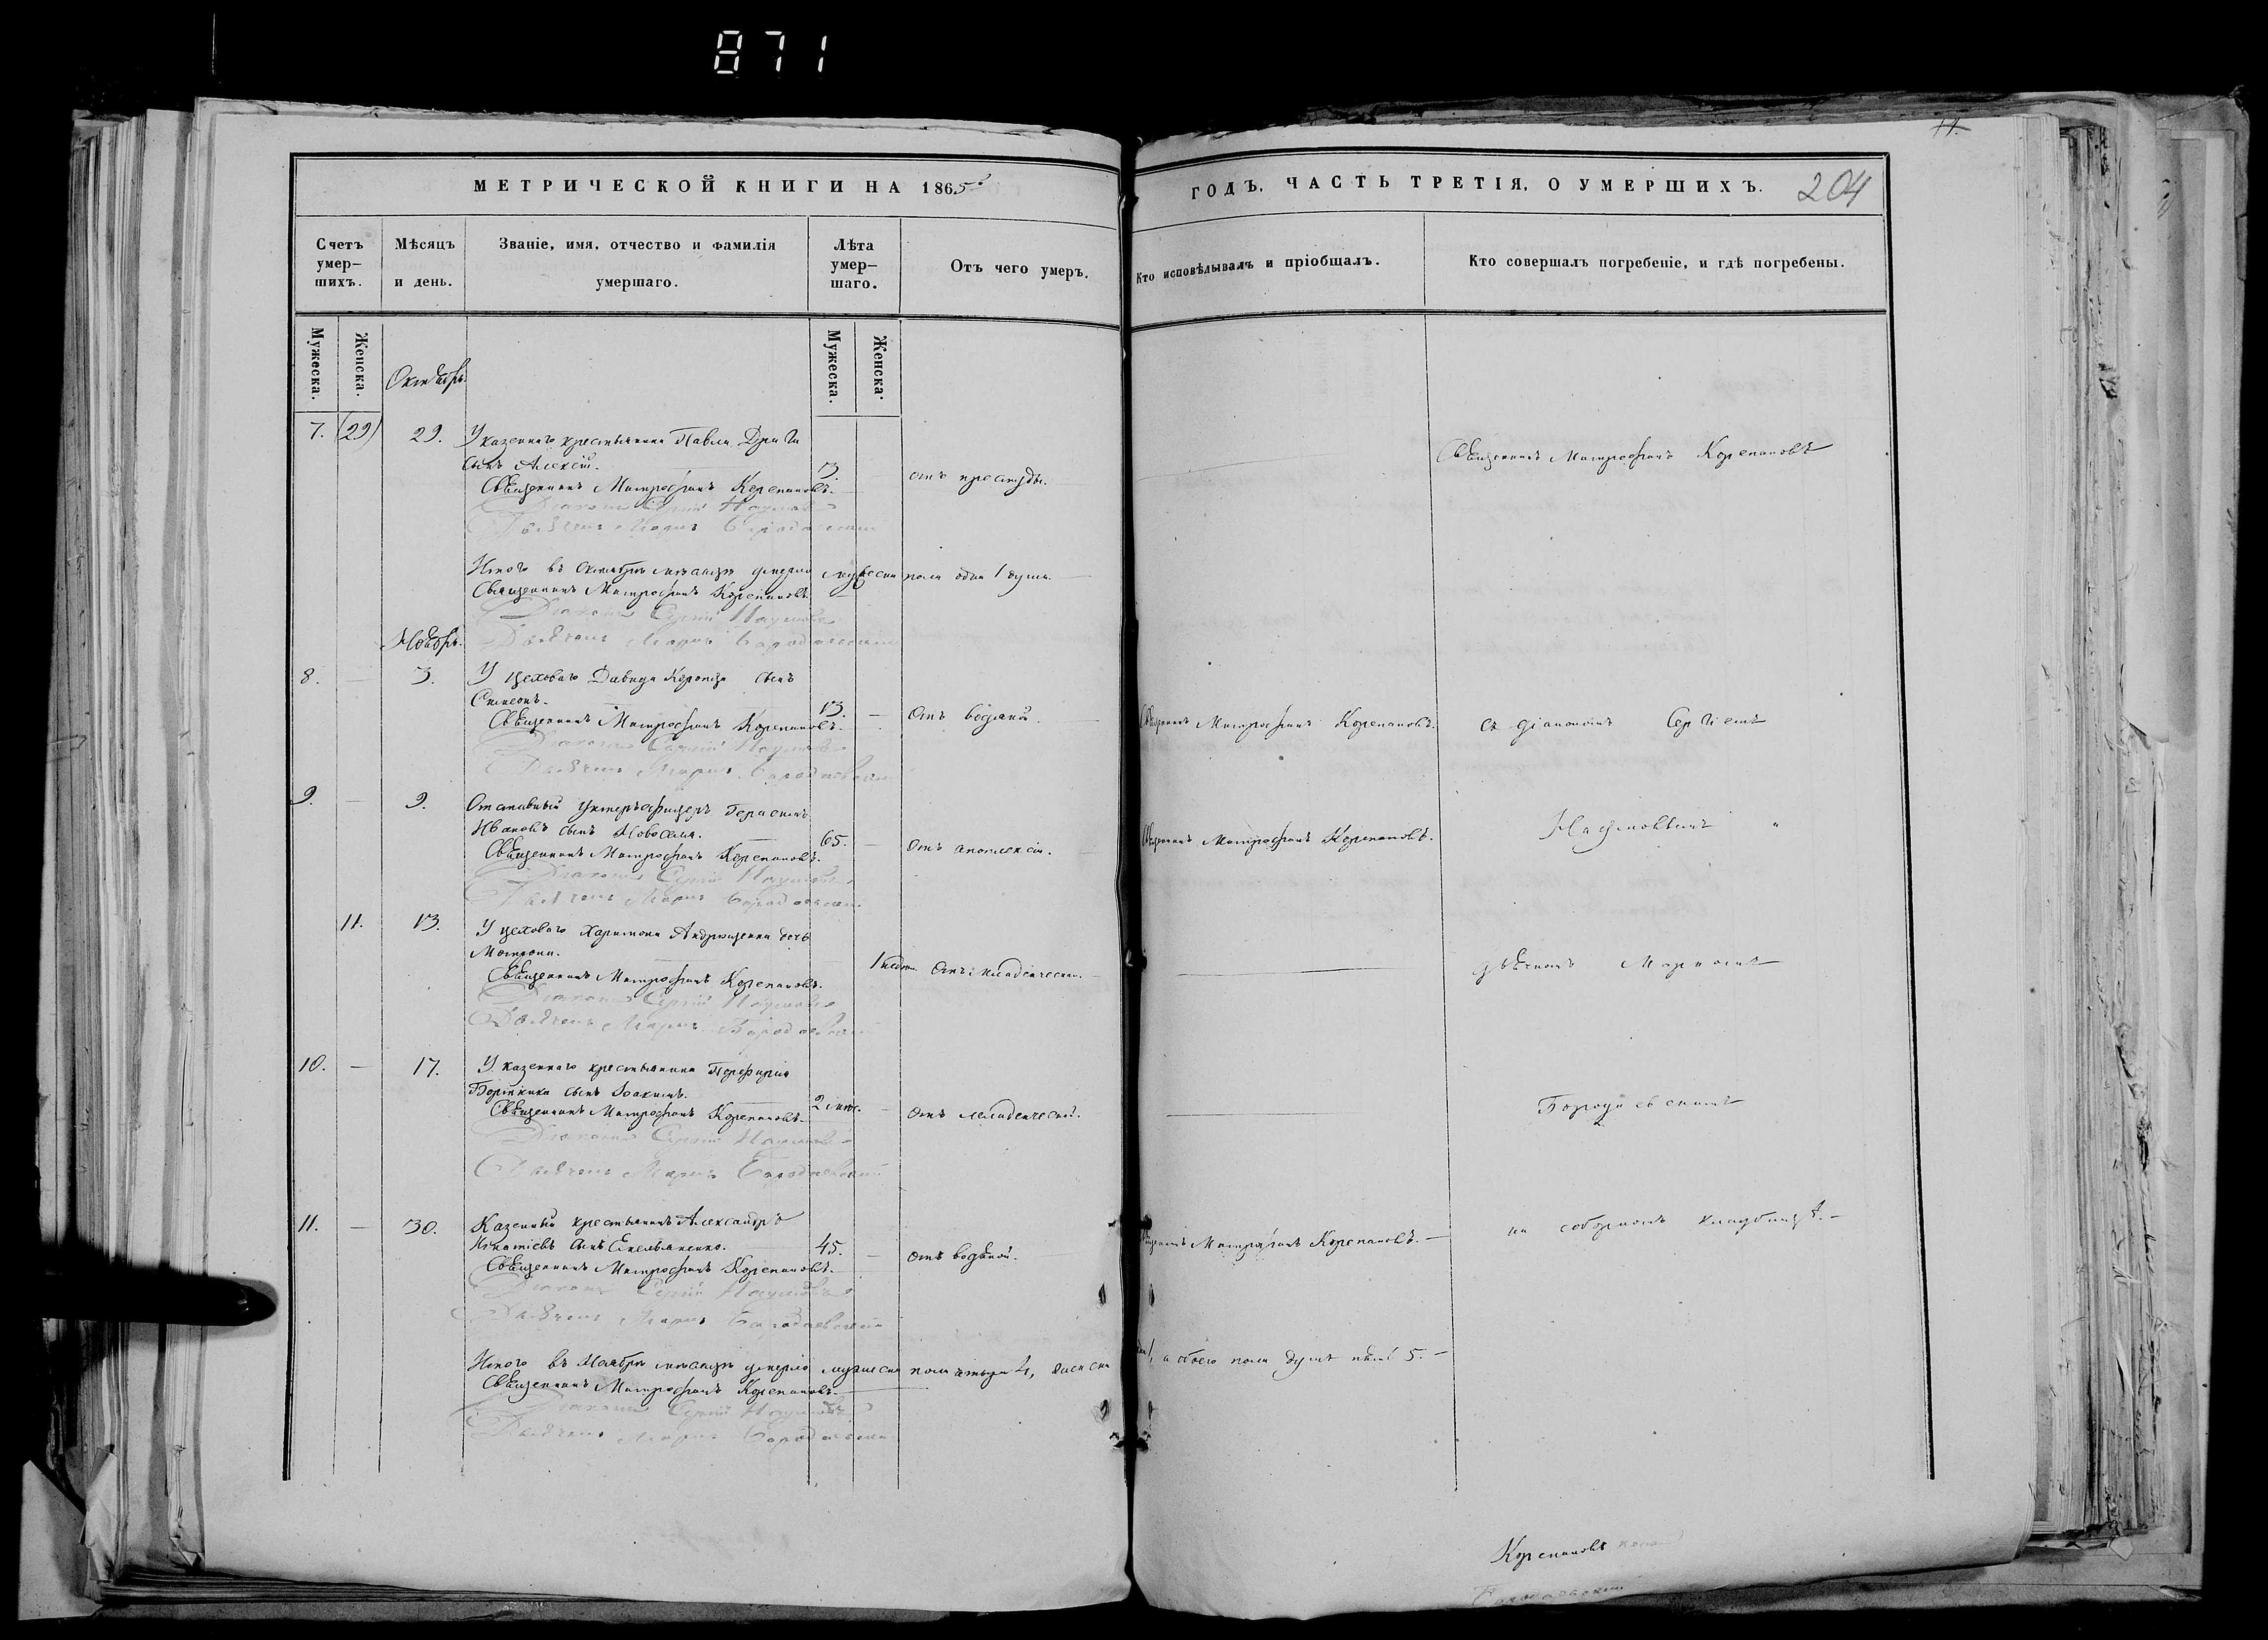 871
МЕТРИЧЕСКОЙ КНИГИ НА 1865й
Счетъ умер-шихъ.
Мѣсяцъ и день.
Званіе, имя, отчество и фамилія умершаго.
Лѣта умер-шаго.
Отъ чего умеръ.
Мужеска.
Женска.
Мужеска.
Женска.
Октябрь.
7. (29) 29. У казеннаго крестьянина Павла
сынъ Алексій. 13. отъ простуды.
Священникъ Митрофанъ Корепановъ.
Діаконъ Сергій Наумовъ
Дьячекъ Маркъ Бородаевскій
Итого въ Октябрѣ мѣсяцѣ умерло мужеска пола одна 1 душа.
Священникъ Митрофанъ Корепановъ
Діаконъ Сергій Наумовъ
Ноябрь. Дьячекъ Маркъ Бородаевскій
8. — 3. У цеховаго Давида сынъ
Симеонъ. 13. — Отъ водяной.
Священникъ Митрофанъ Корепановъ.
Діаконъ Сергій Наумовъ
Дьячекъ Маркъ Бородаевскій
9. — 9. Отставный унтеръофицеръ Герасимъ
Ивановъ сынъ 65. — Отъ апоплексіи.
Священникъ Митрофанъ Корепановъ.
Діаконъ Сергій Наумовъ
Дьячекъ Маркъ Бородаевскій
11. 13. У цеховаго Харитона Андрющенка дочь
Матрона. 1 Отъ младенческой.
Священникъ Митрофанъ Корепановъ.
Діаконъ Сергій Наумовъ
Дьячекъ Маркъ Бородаевскій
10. — 17. У казеннаго крестьянина Порфирія
сынъ Іоакимъ. 2 — отъ младенческой.
Священникъ Митрофанъ Корепановъ.
Діаконъ Сергій Наумовъ
Дьячекъ Маркъ Бородаевскій
11. — 30. Казенный крестьянинъ Александръ
Игнатіевъ сынъ Емельяненко. 45. — отъ водяной.
Священникъ Митрофанъ Корепановъ.
Діаконъ Сергій Наумовъ
Дьячекъ Маркъ Бородаевскій
Итого въ Ноябрѣ мѣсяцѣ умерло мужеска пола четыре 4, женска
Священникъ Митрофанъ Корепановъ.
Діаконъ Сергій Наумовъ
Дьячекъ Маркъ Бородаевскій
ГОДЪ, ЧАСТЬ ТРЕТІЯ, О УМЕРШИХЪ. 204
Кто исповѣдывалъ и пріобщалъ.
Кто совершалъ погребеніе, и гдѣ погребены.
Священникъ Митрофанъ Корепановъ
Священникъ Митрофанъ Корепановъ. съ діакономъ Сергіемъ
Священникъ Митрофанъ Корепановъ. Наумовымъ и
дьячкомъ Маркомъ
Бородаевскимъ
Священникъ Митрофанъ Корепановъ. — на соборномъ кладбищѣ. —
1, а обоего пола душъ пять 5. —
Корепановъ